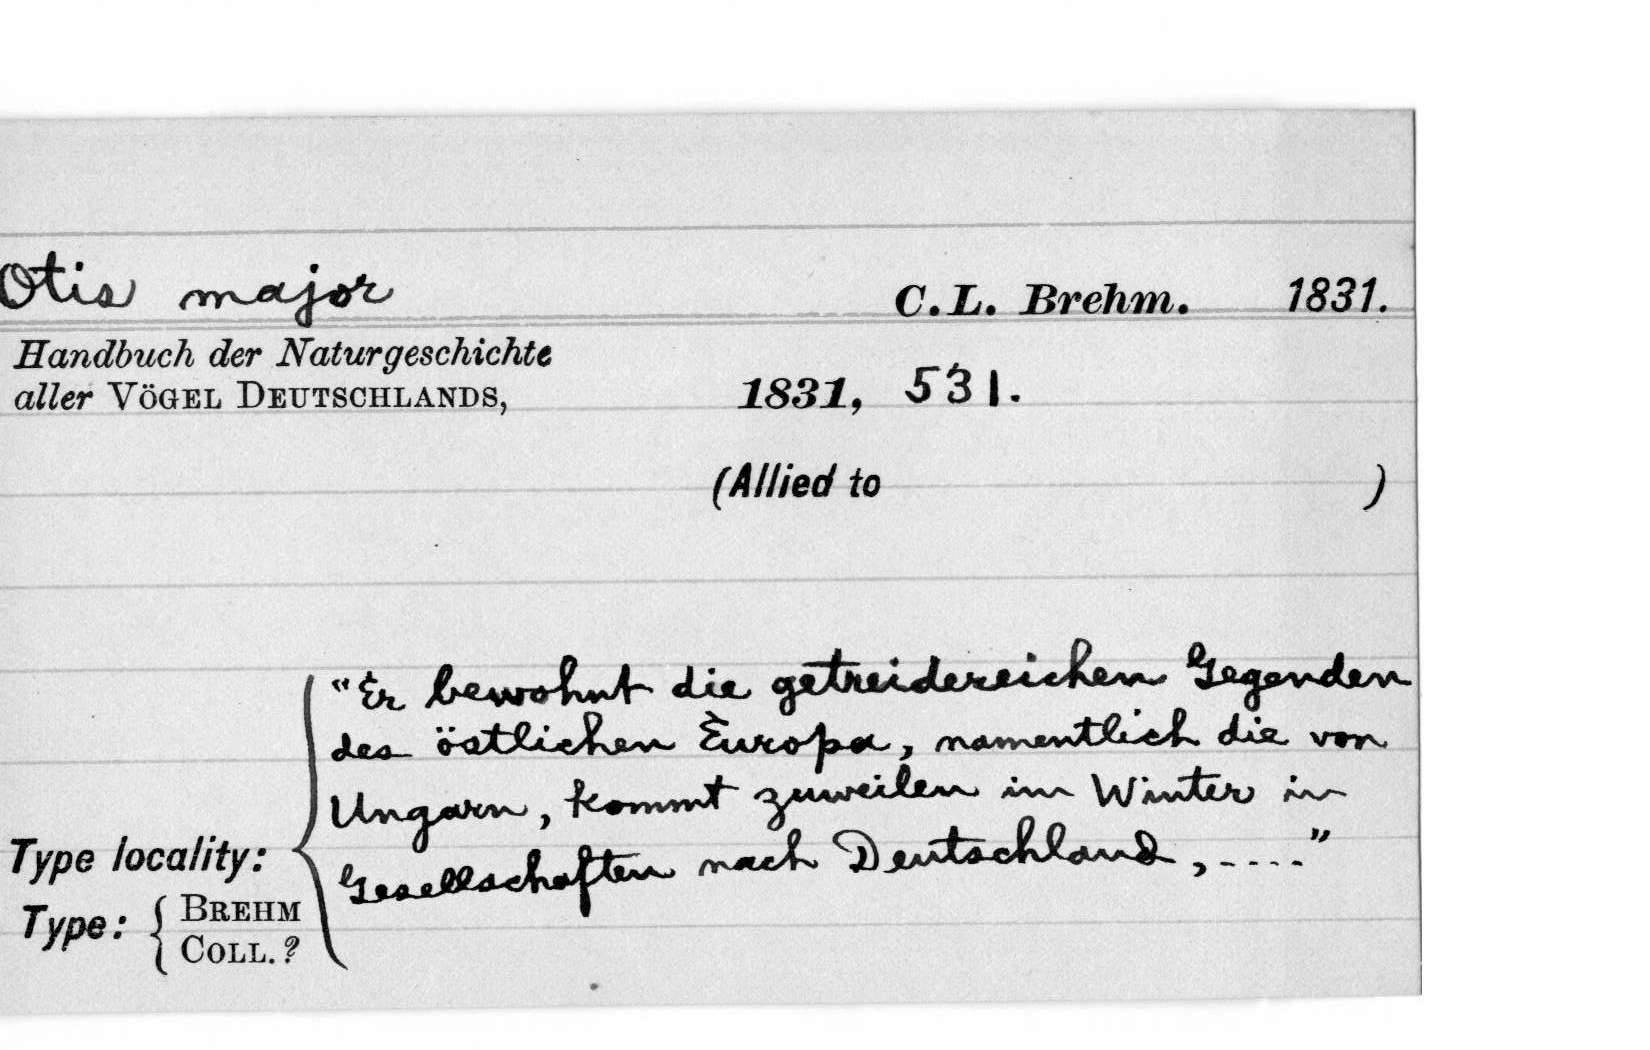 Otis major C. L. Brehm. 1831.
Handbuch der Naturgeschichte
aller VÖGEL DEUTSCHLANDS, 1831, 531.
(Allied to )
"Er bewohnt die getreidereichen Gegenden
des östlichen Europa, namentlich die von
Ungarn, kommt zuweilen im Winter in
Gesellschaften nach Deutschland, ....."
Type locality:
Type: { BREHM
COLL. ?